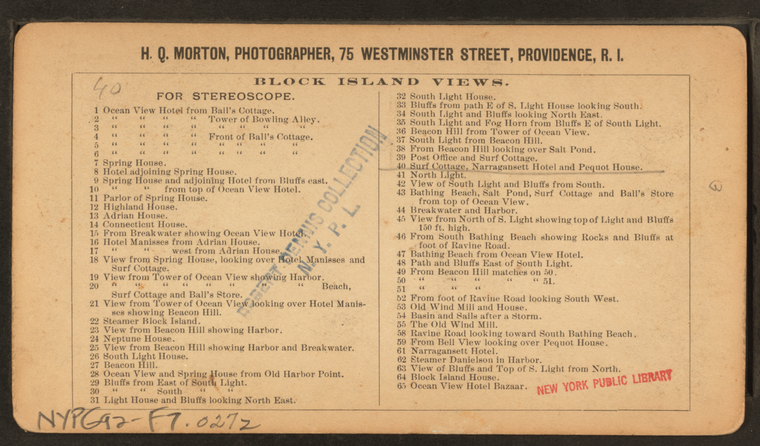 H. Q. MORTON, PHOTOGRAPHER, 75 WESTMINSTER STREET, PROVIDENCE, R. I.
40
BLOCK ISLAND VIEWS.
FOR STEREOSCOPE.
1 Ocean View Hotel from Ball's Cottage.
2 " " " " Tower of Bowling Alley.
3 " " " " " " "
4 " " " " Front of Ball's Cottage.
5 " " " " " " "
6 " " " " " " "
7 Spring House.
8 Hotel adjoining Spring House.
9 Spring House and adjoining Hotel from Bluffs east.
10 " " from top of Ocean View Hotel.
11 Parlor of Spring House.
12 Highland House.
13 Adrian House.
14 Connecticut House.
15 From Breakwater showing Ocean View Hotel.
16 Hotel Manisses from Adrian House.
17 " " west from Adrian House.
18 View from Spring House, looking over Hotel Manisses and
Surf Cottage.
19 View from Tower of Ocean View showing Harbor.
20 " " " " " " " Beach,
Surf Cottage and Ball's Store.
21 View from Tower of Ocean View looking over Hotel Manis-
ses showing Beacon Hill.
22 Steamer Block Island.
23 View from Beacon Hill showing Harbor.
24 Neptune House.
25 View from Beacon Hill showing Harbor and Breakwater.
26 South Light House.
27 Beacon Hill.
28 Ocean View and Spring House from Old Harbor Point.
29 Bluffs from East of South Light.
30 " " South " "
31 Light House and Bluffs looking North East.
32 South Light House.
33 Bluffs from path E of S. Light House looking South.
34 South Light and Bluffs looking North East.
35 South Light and Fog Horn from Bluffs E of South Light.
36 Beacon Hill from Tower of Ocean View.
37 South Light from Beacon Hill.
38 From Beacon Hill looking over Salt Pond.
39 Post Office and Surf Cottage.
40 Surf Cottage, Narragansett Hotel and Pequot House.
41 North Light.
42 View of South Light and Bluffs from South.
43 Bathing Beach, Salt Pond, Surf Cottage and Ball's Store
from top of Ocean View.
44 Breakwater and Harbor.
45 View from North of S. Light showing top of Light and Bluffs
150 ft. high.
46 From South Bathing Beach showing Rocks and Bluffs at
foot of Ravine Road.
47 Bathing Beach from Ocean View Hotel.
48 Path and Bluffs East of South Light.
49 From Beacon Hill matches on 50.
50 " " " " " 51.
51 " " "
52 From foot of Ravine Road looking South West.
53 Old Wind Mill and House.
54 Basin and Sails after a Storm.
55 The Old Wind Mill.
58 Ravine Road looking toward South Bathing Beach.
59 From Bell View looking over Pequot House.
61 Narragansett Hotel.
62 Steamer Danielson in Harbor.
63 View of Bluffs and Top of S. Light from North.
64 Block Island House.
65 Ocean View Hotel Bazaar.
ROBERT DENNIS COLLECTION
N. Y. P. L.
NEW YORK PUBLIC LIBRARY
NYPG92-F7.0272